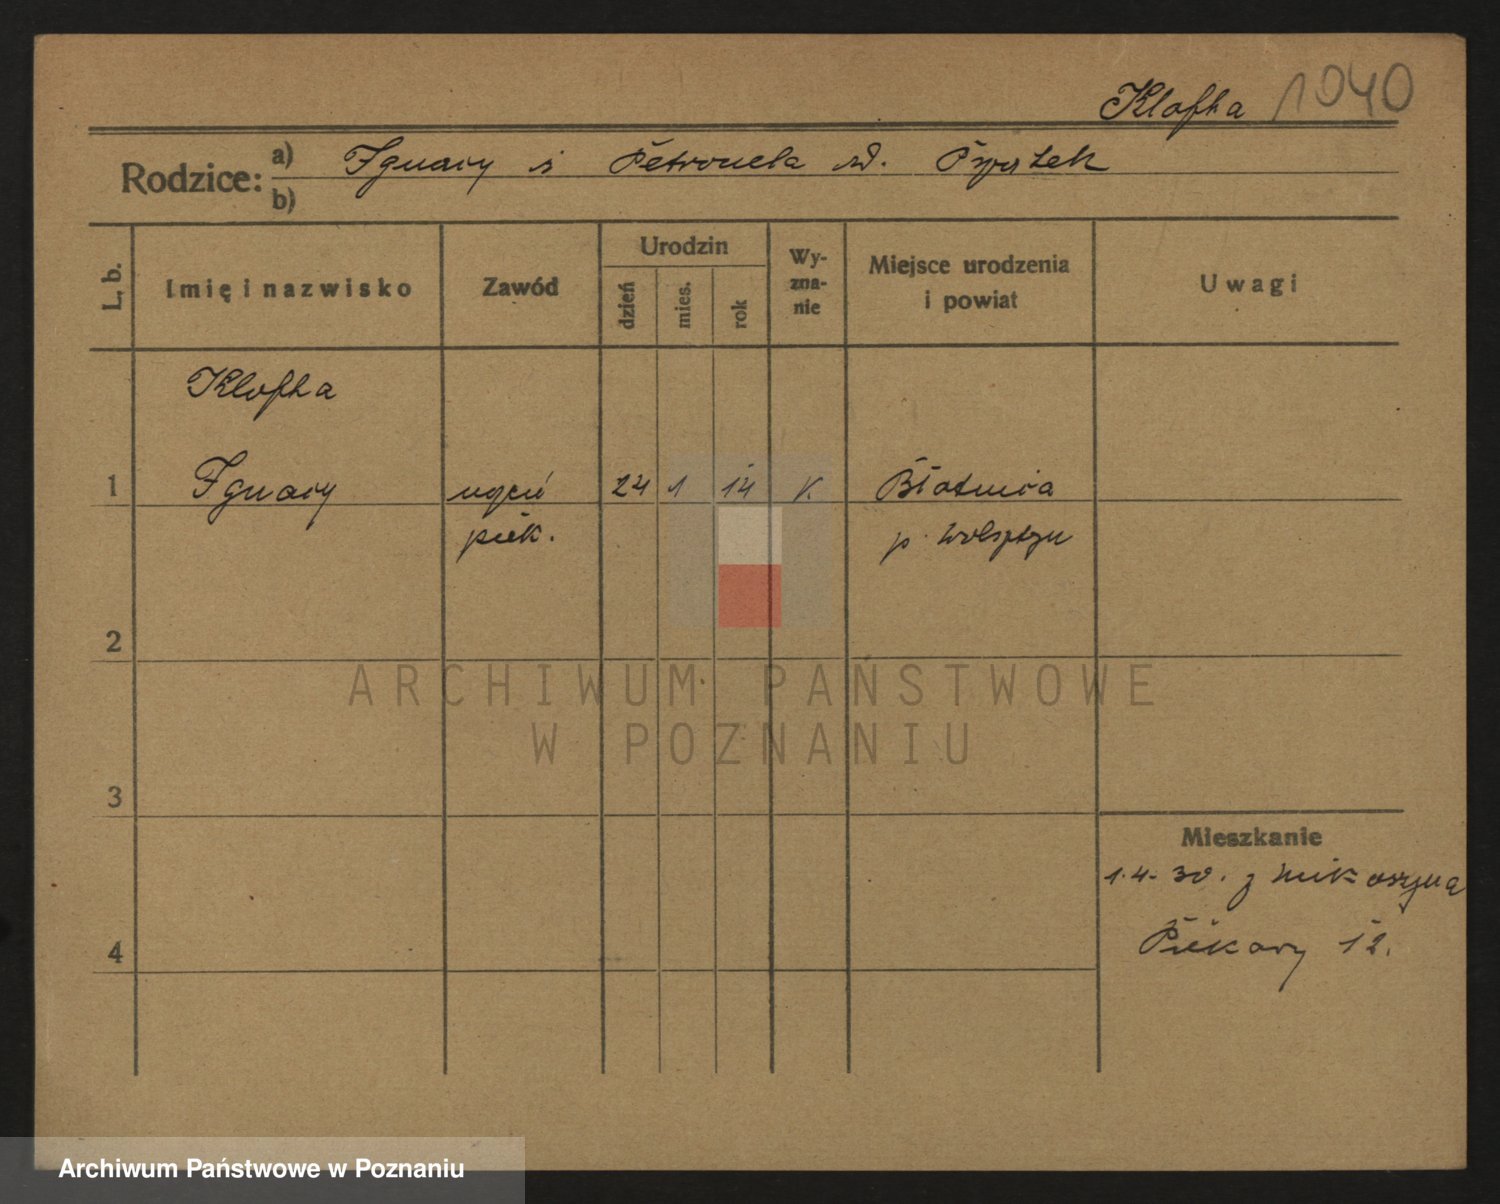 Klofka 1040
Rodzice: a) Ignacy i Petronela zd. Piątek
b)
L. b. Imię i nazwisko Zawód Urodzin dzień mies. rok Wy-zna-nie Miejsce urodzenia i powiat Uwagi
Klofka
1 Ignacy uczeń 24 1 14 k. Błotnica
piek. p. Wolsztyn
2
ARCHIWUM PAŃSTWOWE
W POZNANIU
3
Mieszkanie
1.4.30. z
4 Piekary 12.
Archiwum Państwowe w Poznaniu